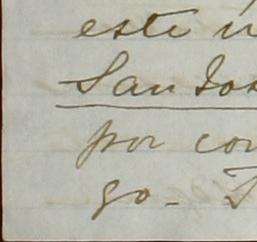 este
San Jos
por con
go -